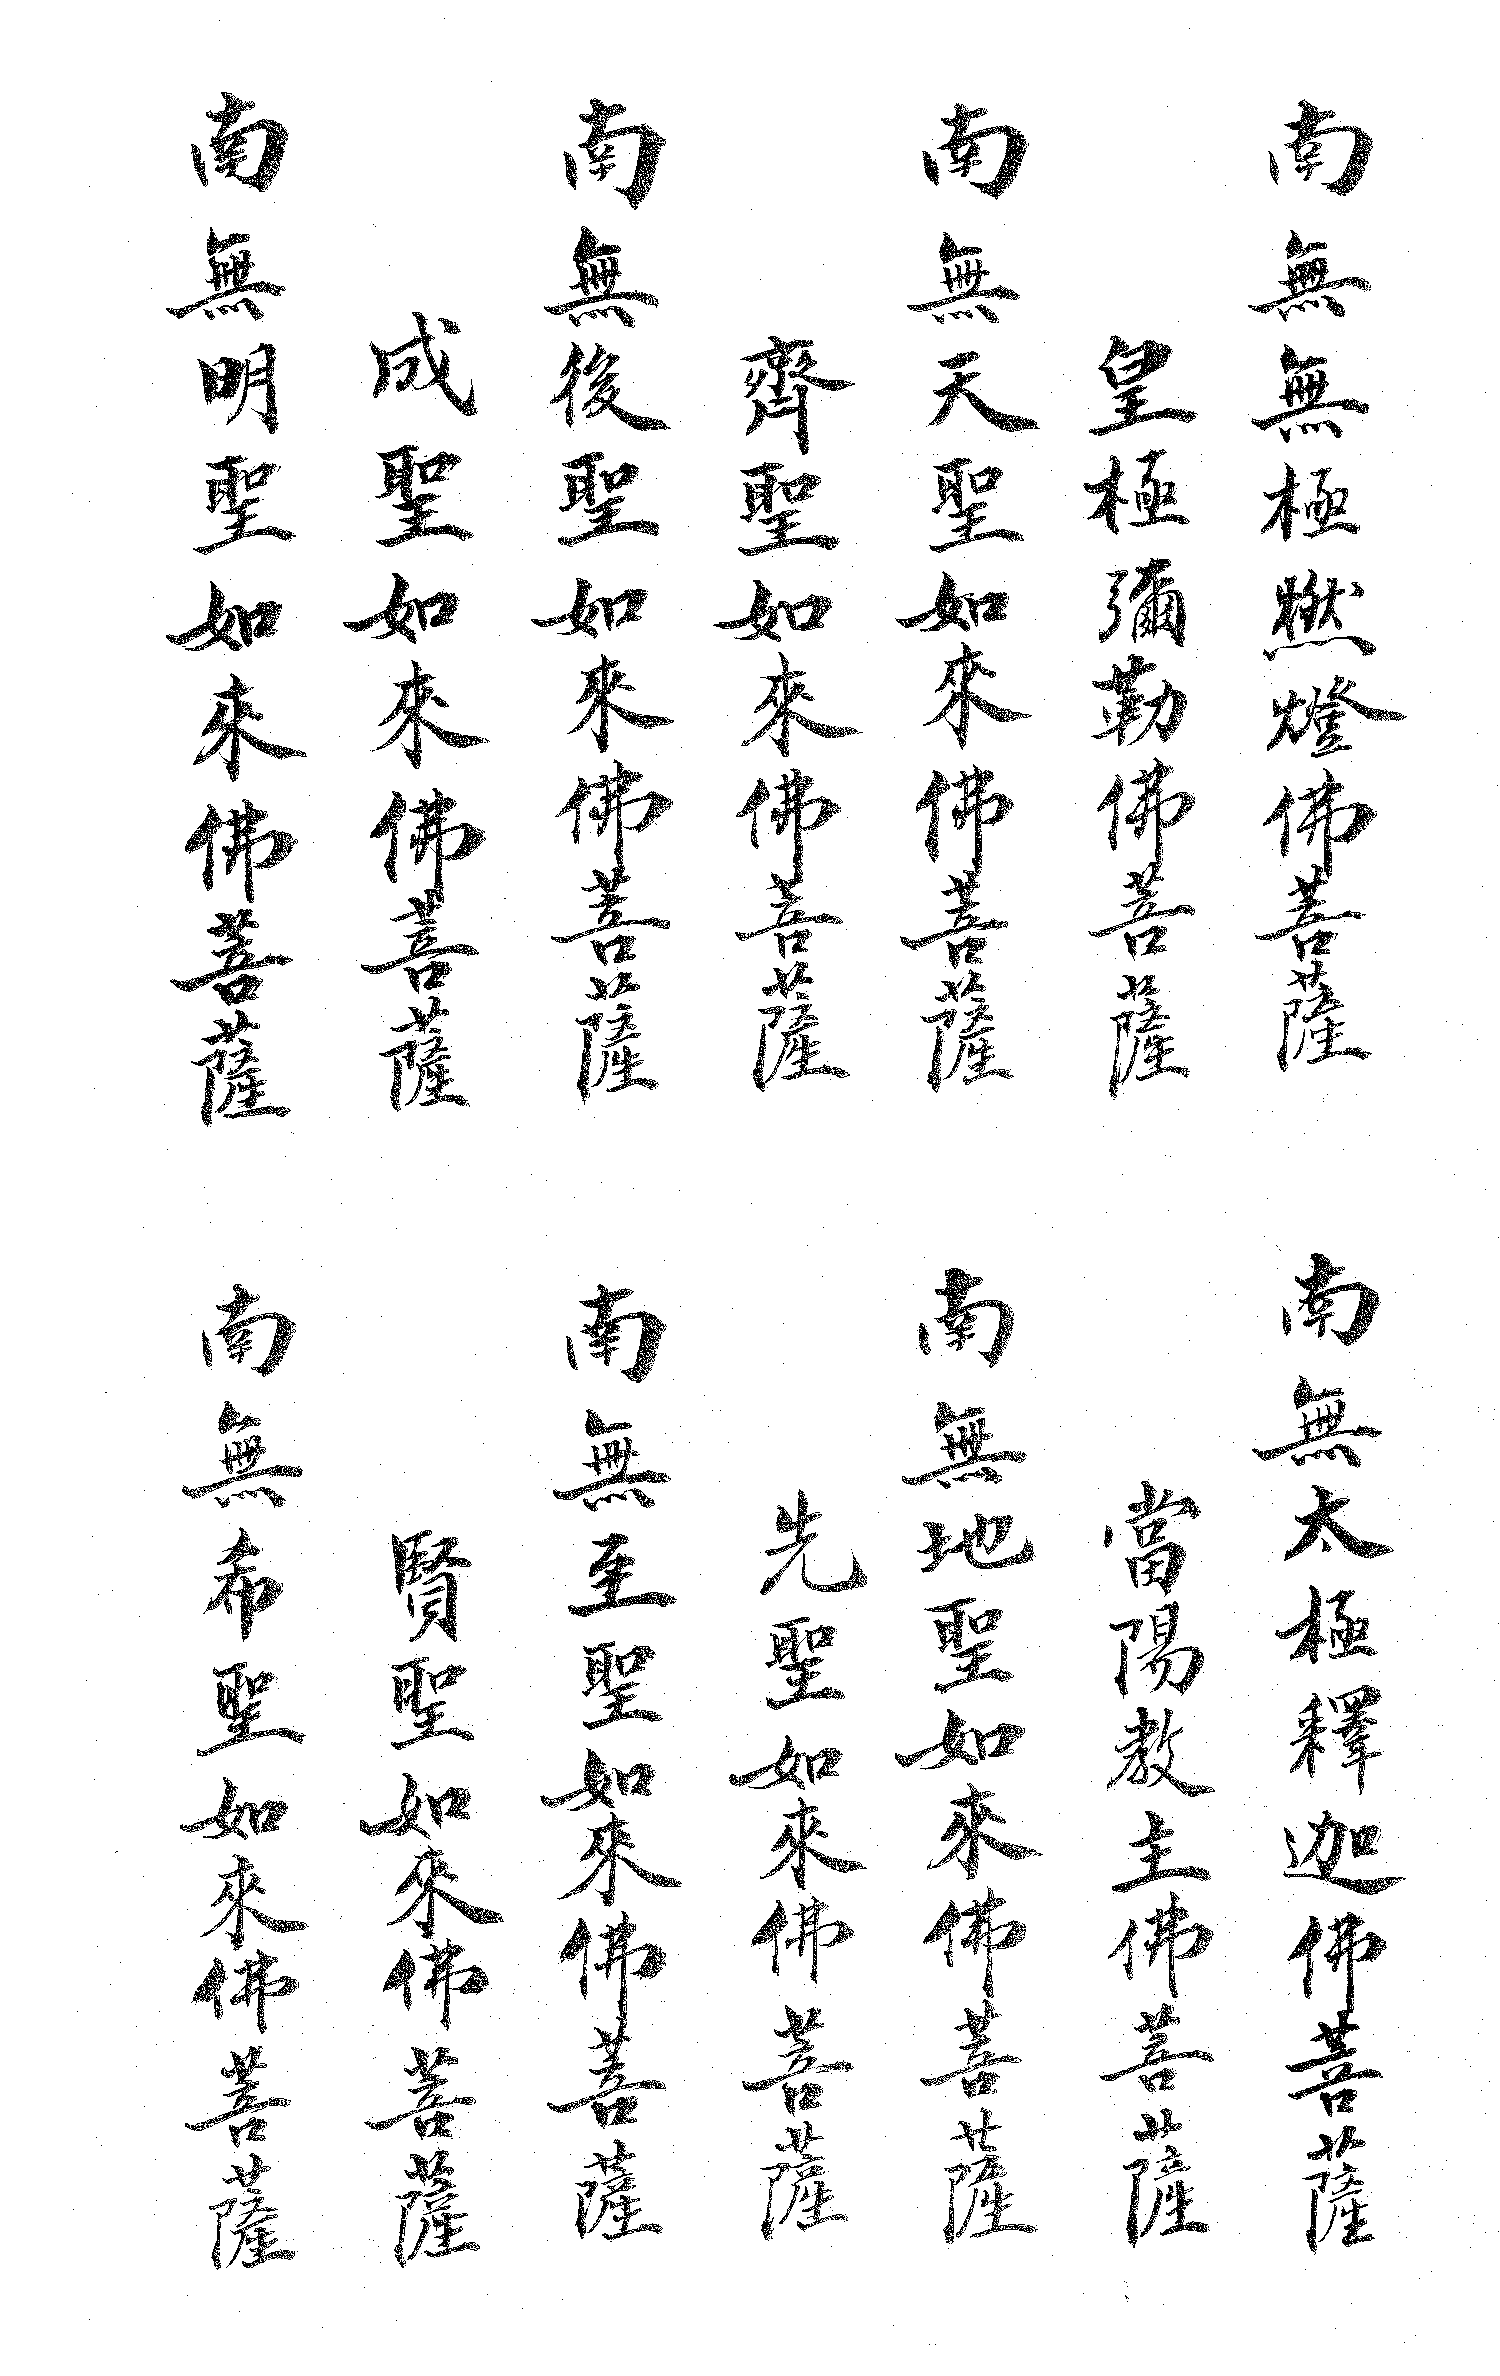 南無無極燃燈佛菩薩
皇極彌勒佛菩薩
南無天聖如來佛菩薩
齊聖如來佛菩薩
南無後聖如來佛菩薩
成聖如來佛菩薩
南無明聖如來佛菩薩
南無太極釋迦佛菩薩
當陽教主佛菩薩
南無地聖如來佛菩薩
先聖如來佛菩薩
南無至聖如來佛菩薩
賢聖如來佛菩薩
南無希聖如來佛菩薩